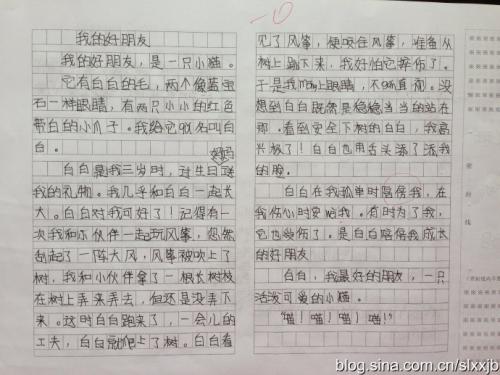 -10
我的好朋友
我的好朋友，是一只小猫。
它有白白的毛，两个像蓝宝
石一样眼睛，有两只小小的红色
带白的小爪子。我给它取名叫白
白。
妈妈
白白是我三岁时，过生日送
我的礼物。我几乎和白白一起长
大。白白对我可好了！记得有一
次我和小伙伴一起玩风筝，忽然
刮起了一阵大风，风筝被吹上了
树，我和小伙伴拿了一根长树枝
在树上弄来弄去，但还是没弄下
来。这时白白跑来了，一会儿的
工夫，白白就爬上了树。白白看
见了风筝，便咬住风筝，准备从
树上跳下来，我好怕它摔伤了。于
是我闭上眼睛，不敢直视。没
想到白白既然是稳稳当当的站在
那。看到安全下树的白白，我高
兴极了！白白也用舌头添了添我
的脸。
白白在我孤单时陪傍我，在
我伤心时安啥我。有时为了我，
它也受伤了。是白白陪傍我成长
的好朋友
白白，我最好的朋友，一只
活泼可爱的小猫。
“喵！喵！喵！喵！”
密
封
线
blog.sina.com.cn/slxxjb